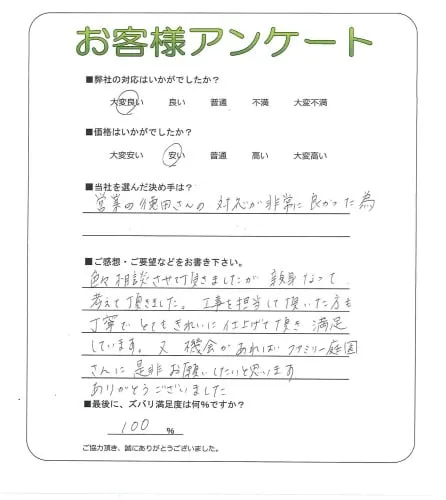 お客様アンケート
■弊社の対応はいかがでしたか?
大変良い 良い 普通 不満 大変不満
■価格はいかがでしたか?
大変安い 安い 普通 高い 大変高い
■当社を選んだ決め手は?
営業の徳田さんの対応が非常に良かった為
■ご感想・ご要望などをお書き下さい。
色々相談させて頂きましたが 親身なって
考えて頂きました。工事を担当して頂いた方も
丁寧で とてもきれいに仕上げて頂き 満足
しています。又 機会があればファミリー庭園
さんに是非お願いしたいと思います
ありがとうございました
■最後に、ズバリ満足度は何%ですか?
100 %
ご協力頂き、誠にありがとうございました。